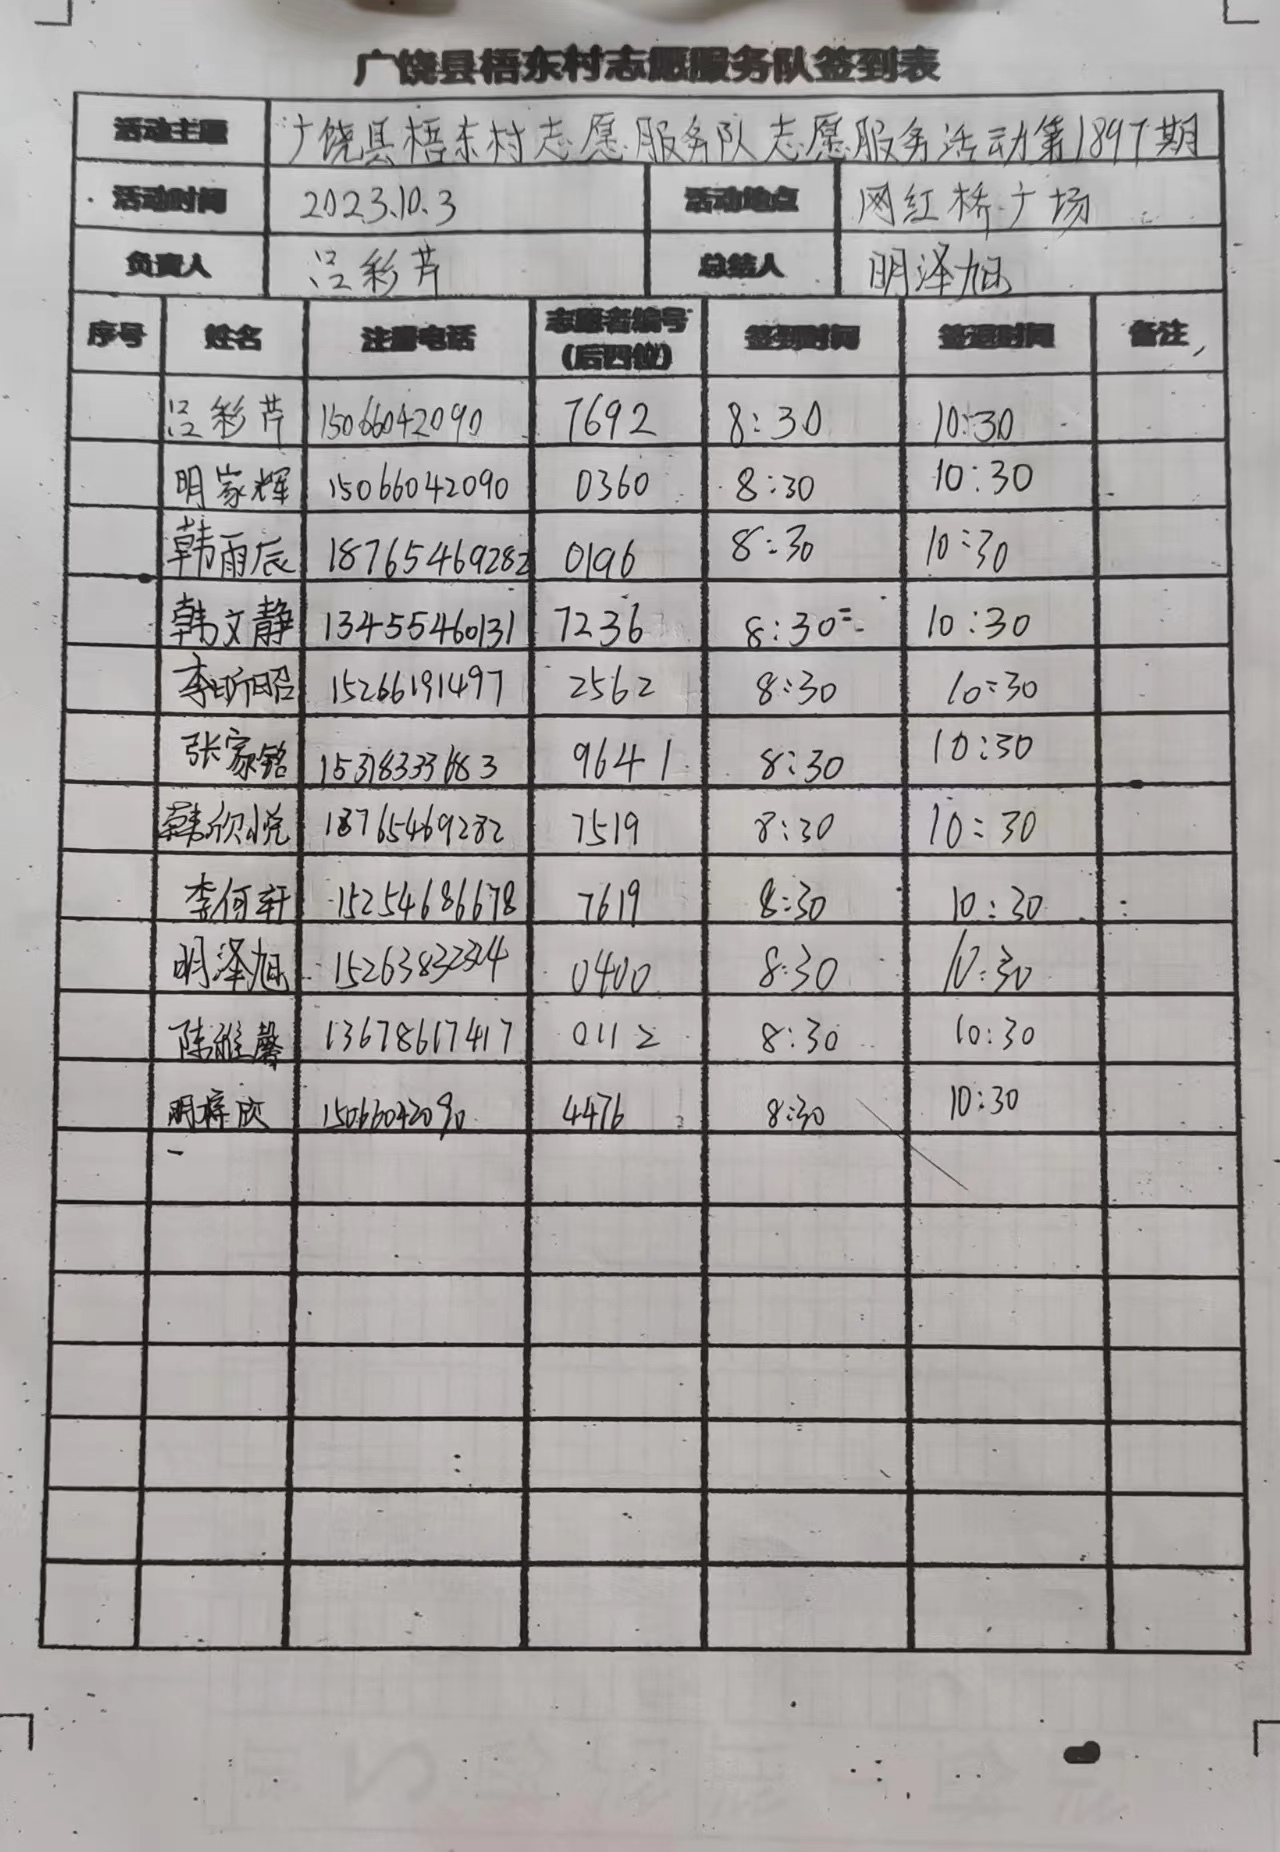 广饶县梧东村志愿服务队签到表
活动主题 广饶县梧东村志愿服务队志愿服务活动第1897期
活动时间 2023.10.3 活动地点 网红桥广场
负责人 吕彩芹 总结人 明泽旭
序号 姓名 注册电话 志愿者编号(后四位) 签到时间 签退时间 备注
吕彩芹 15066042090 7692 8:30 10:30
明家辉 15066042090 0360 8:30 10:30
韩雨辰 18765469282 0196 8:30 10:30
韩文静 13455460131 7236 8:30 10:30
李昕昭 15266191497 2562 8:30 10:30
张家铭 15318333683 9641 8:30 10:30
韩欣悦 18765469282 7519 8:30 10:30
李何轩 15254686678 7619 8:30 10:30
明泽旭 0400 8:30 10:30
陈雅馨 13678617417 0112 8:30 10:30
明梓欣 15066042090 4476 8:30 10:30